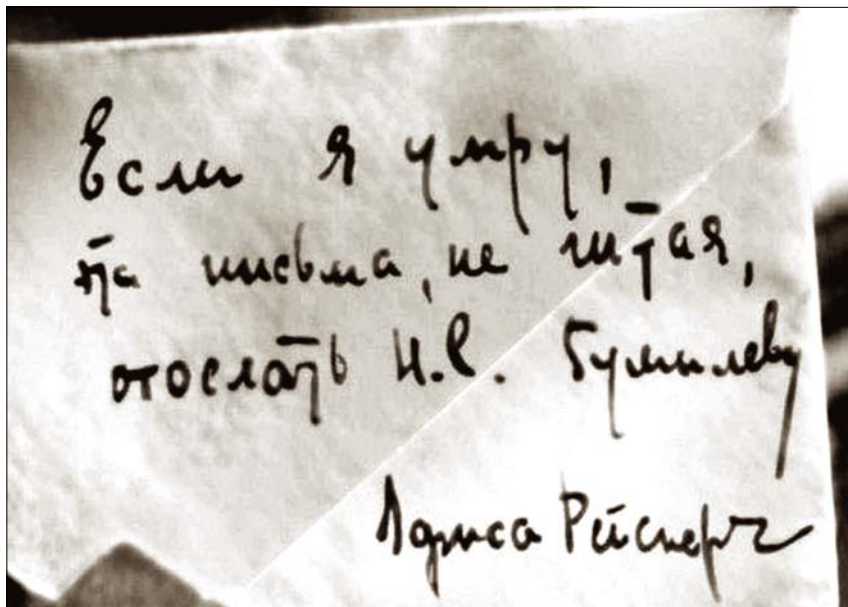 Если я умру,
эти письма, не читая,
отослать Н.С. Гумилеву
Лариса Рейснер